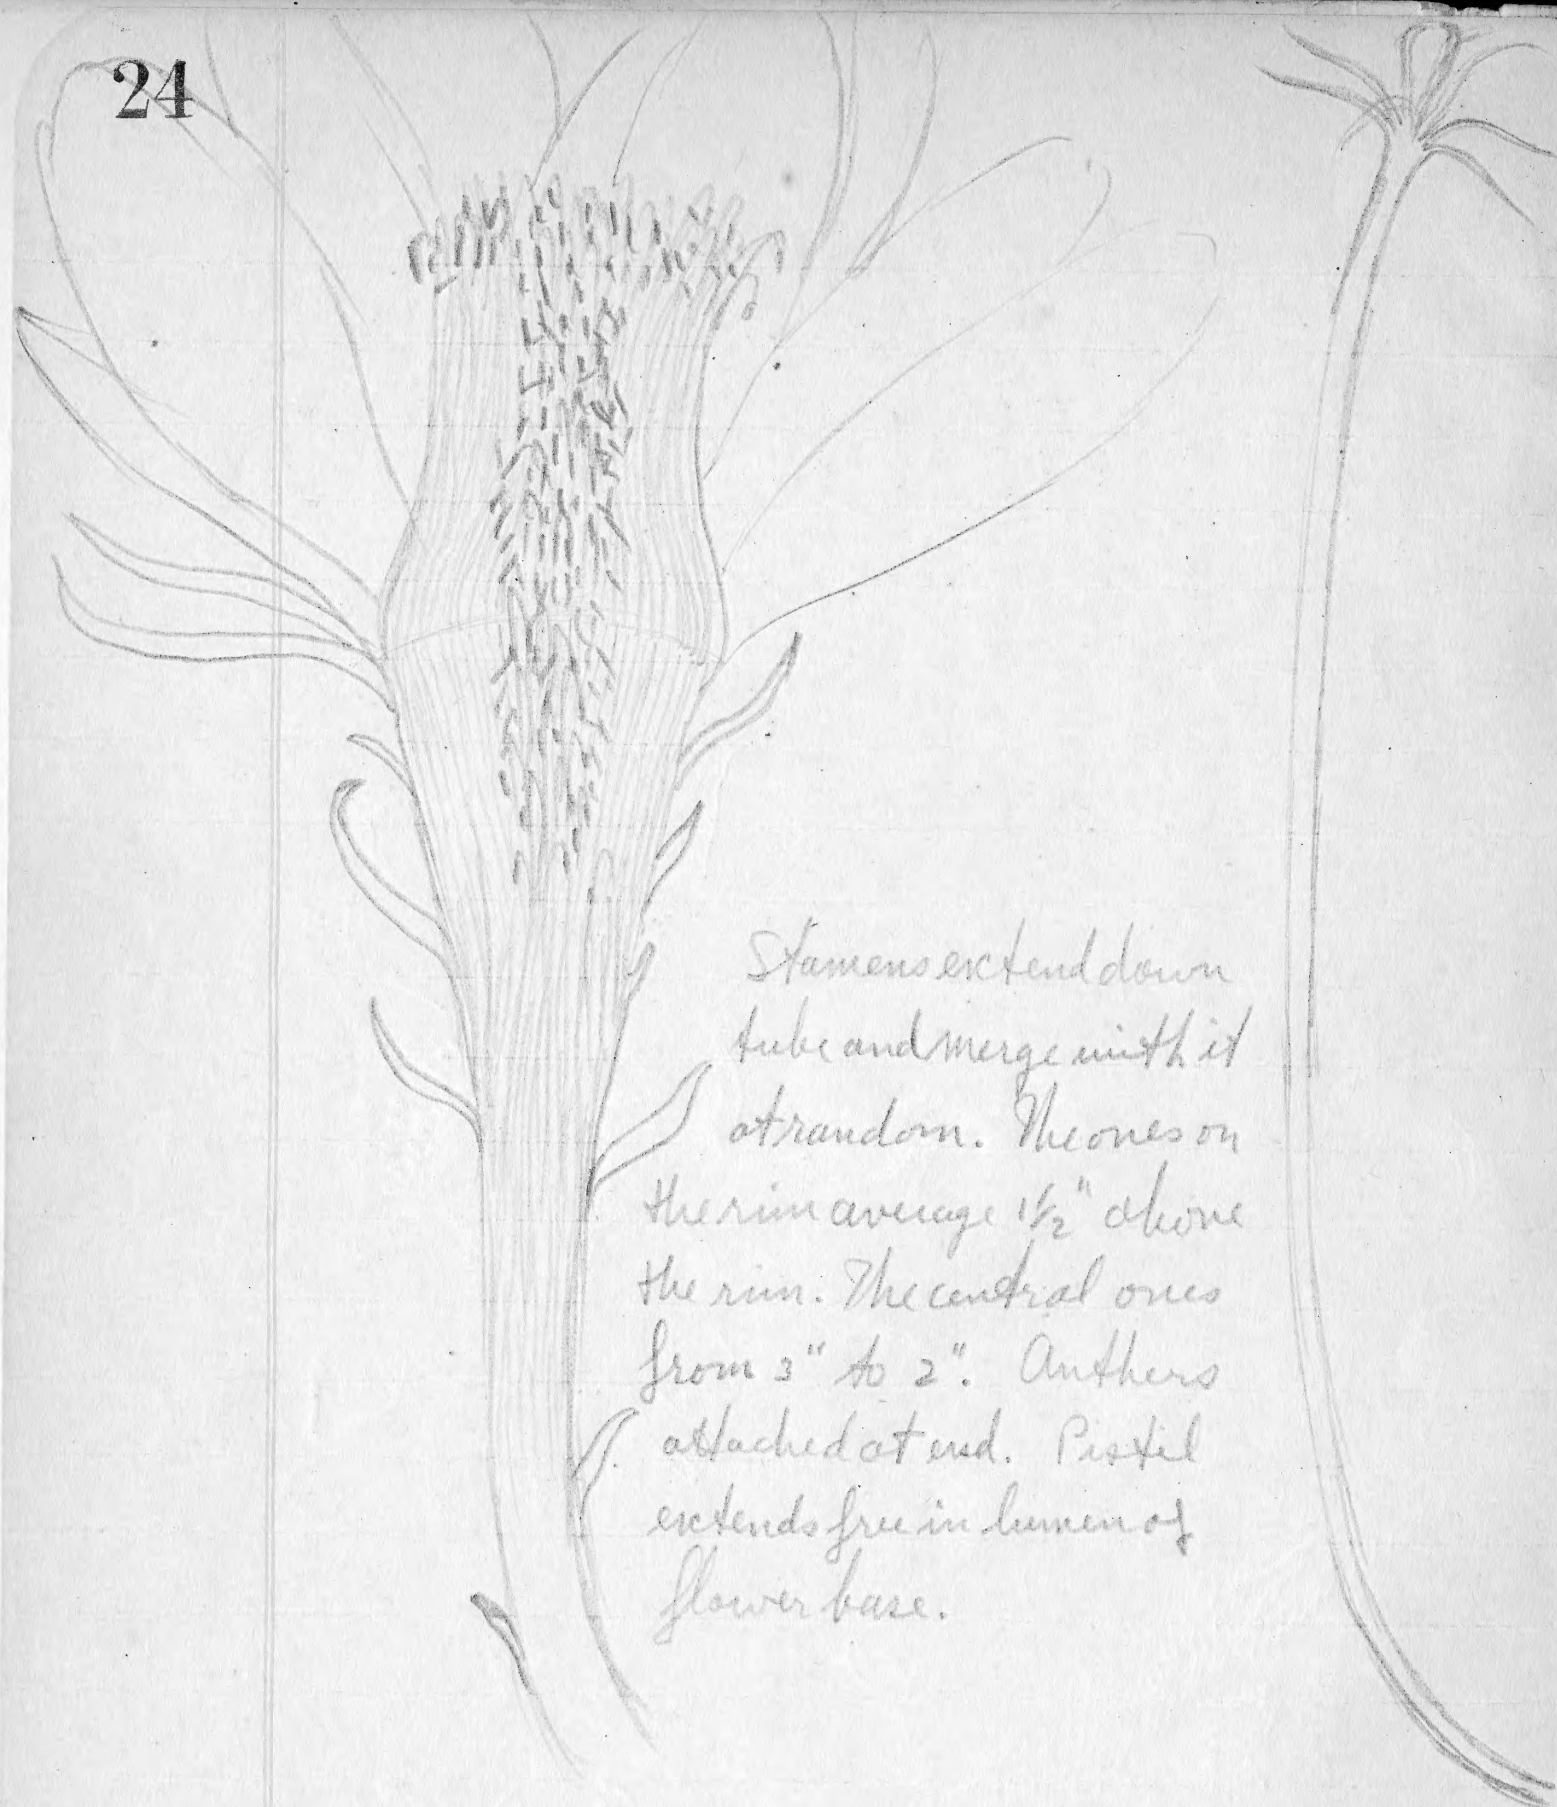 24
Stamens extend down
tube and merge with it
at random. The ones on
the rim average 1 1/2" above
the rim. The central ones
from 3" to 2". Anthers
attached at end. Pistil
extends free in lumen of
flower base.